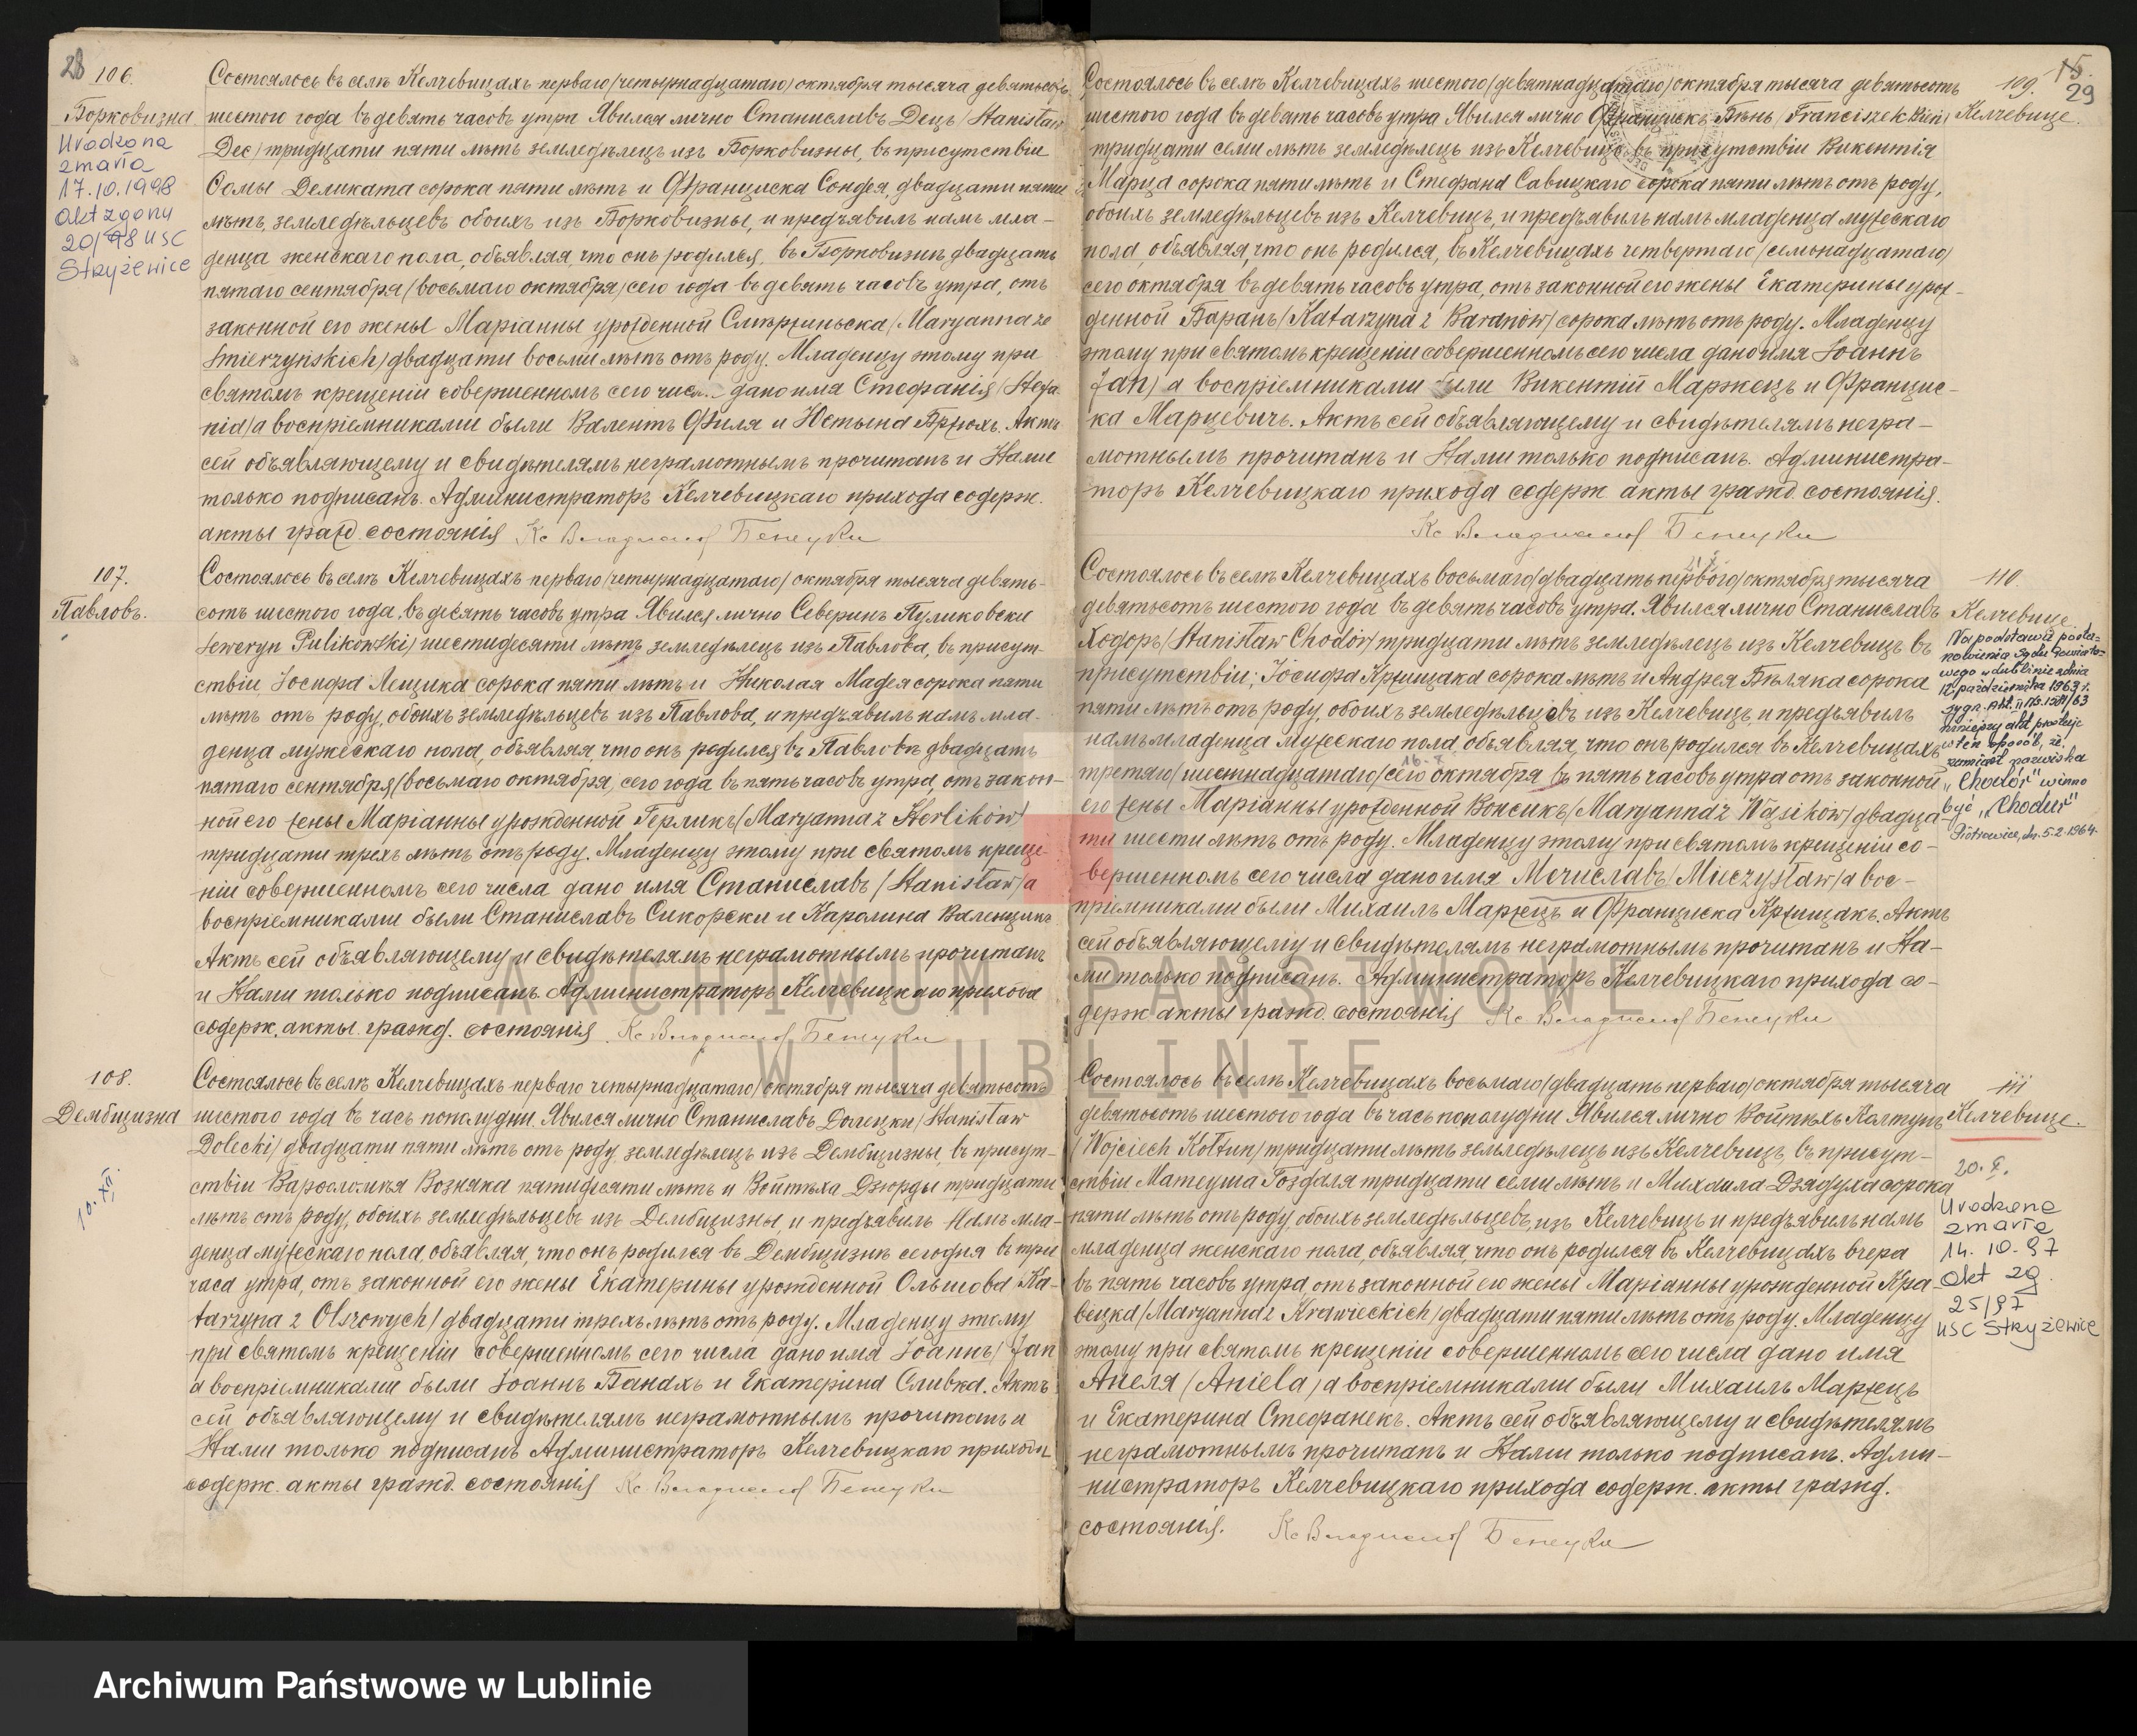 28
106.
Борковизна
Urodzona
zmarła
17.10.1998
Akt zgonu
20/98 USC
Strzyżewice
Состоялось въ селѣ Келчевицахъ перваго /четырнадцатаго/ октября тысяча девятьсотъ
шестого года въ девять часовъ утра. Явился лично Станиславъ Децъ /Stanisław
Dec/ тридцати пяти лѣтъ земледѣлецъ изъ Борковизны, въ присутствіи
Деликата сорока пяти лѣтъ и Францишка двадцати пяти
лѣтъ, земледѣльцевъ обоихъ изъ Борковизны, и предъявилъ намъ мла-
денца женскаго пола, объявляя, что онъ родился въ Борковизнѣ двадцать
пятаго сентября /восьмаго октября/ сего года въ девять часовъ утра, отъ
законной его жены Маріанны урожденной /Maryanna ze
Smierzyńskich/ двадцати восьми лѣтъ отъ роду. Младенцу этому при
святомъ крещеніи совершенномъ сего числа дано имя Стефанія /Stefa-
nia/ а воспріемниками были Валентъ Филя и Юстына Бржохъ. Актъ
сей объявляющему и свидѣтелямъ неграмотнымъ прочитанъ и Нами
только подписанъ. Администраторъ Келчевицкаго прихода содерж.
акты гражд. состоянія Кс
107.
Павловъ.
Состоялось въ селѣ Келчевицахъ перваго /четырнадцатаго/ октября тысяча девять-
сотъ шестого года, въ десять часовъ утра. Явился лично Северинъ Пуликовски
/Seweryn Pulikowski/ шестидесяти лѣтъ земледѣлецъ изъ Павлова, въ присут-
ствіи Іосифа Лещика сорока пяти лѣтъ и Николая Мадея сорока пяти
лѣтъ отъ роду, обоихъ земледѣльцевъ изъ Павлова, и предъявилъ намъ мла-
денца мужескаго пола, объявляя, что онъ родился въ Павловѣ двадцать
пятаго сентября /восьмаго октября/ сего года въ пять часовъ утра, отъ закон-
ной его жены Маріанны урожденной Герликъ /Maryanna z Herlików/
тридцати трехъ лѣтъ отъ роду. Младенцу этому при святомъ креще-
ніи совершенномъ сего числа дано имя Станиславъ /Stanisław/ а
воспріемниками были Станиславъ Сикорски и Каролина
Актъ сей объявляющему и свидѣтелямъ неграмотнымъ прочитанъ
и Нами только подписанъ. Администраторъ Келчевицкаго прихода
содерж. акты гражд. состоянія Кс
108.
Дембщизна
10. XII.
Состоялось въ селѣ Келчевицахъ перваго /четырнадцатаго/ октября тысяча девятьсотъ
шестого года въ часъ пополудни. Явился лично Станиславъ Долецки /Stanisław
Dolecki/ двадцати пяти лѣтъ отъ роду, земледѣлецъ изъ Дембщизны, въ присут-
ствіи Варѳоломея Возняка пятидесяти лѣтъ и Войтѣха Дзюрды тридцати
лѣтъ отъ роду, обоихъ земледѣльцевъ изъ Дембщизны и предъявилъ Намъ мла-
денца мужескаго пола, объявляя, что онъ родился въ Дембщизнѣ сегодня въ три
часа утра, отъ законной его жены Екатерины урожденной Ольшова /Ka-
tarzyna z Olszowych/ двадцати трехъ лѣтъ отъ роду. Младенцу этому
при святомъ крещеніи совершенномъ сего числа дано имя Іоаннъ /Jan
а воспріемниками были Іоаннъ и Екатерина Сливка. Актъ
сей объявляющему и свидѣтелямъ неграмотнымъ прочитанъ и
Нами только подписанъ. Администраторъ Келчевицкаго прихода
содерж. акты гражд. состоянія Кс
15.
29
109.
Келчевице.
Состоялось въ селѣ Келчевицахъ шестого /девятнадцатаго/ октября тысяча девятьсотъ
шестого года въ девять часовъ утра. Явился лично Францишекъ Бѣнь /Franciszek Bień/
тридцати семи лѣтъ земледѣлецъ изъ Келчевицъ въ присутствіи Викентія
сорока пяти лѣтъ и Стефана Савицкаго сорока пяти лѣтъ отъ роду,
обоихъ земледѣльцевъ изъ Келчевицъ, и предъявилъ намъ младенца мужескаго
пола, объявляя, что онъ родился, въ Келчевицахъ четвертаго /семнадцатаго/
сего октября въ девять часовъ утра, отъ законной его жены Екатерины урож-
денной Баранъ /Katarzyna z Baranów/ сорока лѣтъ отъ роду. Младенцу
этому при святомъ крещеніи совершенномъ сего числа дано имя Іоаннъ
/Jan/ а воспріемниками были Викентій Маржецъ и Францис-
ка Марцевичъ. Актъ сей объявляющему и свидѣтелямъ негра-
мотнымъ прочитанъ и Нами только подписанъ. Администра-
торъ Келчевицкаго прихода содерж акты гражд. состоянія.
Кс
110.
Келчевице.
Na podstawie posta-
nowienia Sądu Powiato-
wego w Lublinie z dnia
12 października 1963 r.
niniejszy akt prostuje
w ten sposób, że
zamiast nazwiska
„Chodór" winno
być „Chodur"
Piotrowice, dn. 5.2.1964.
Состоялось въ селѣ Келчевицахъ восьмаго /двадцать первого/ октября тысяча
девятьсотъ шестого года въ девять часовъ утра. Явился лично Станиславъ
Ходоръ /Stanisław Chodór/ тридцати лѣтъ земледѣлецъ изъ Келчевицъ въ
присутствіи, Іосифа Кржищака сорока лѣтъ и Андрея Бѣляка сорока
пяти лѣтъ отъ роду, обоихъ земледѣльцевъ изъ Келчевицъ, и предъявилъ
намъ младенца мужескаго пола, объявляя, что онъ родился въ Келчевицахъ
третяго /шестнадцатаго/ сего октября въ пять часовъ утра отъ законной
его жены Маріанны урожденной Вонсикъ /Maryanna z Wąsików/ двадца-
ти шести лѣтъ отъ роду. Младенцу этому при святомъ крещеніи со-
вершенномъ сего числа дано имя Мечиславъ /Mieczysław/ а вос-
пріемниками были Михаилъ Маржецъ и Франциска Кржищакъ. Актъ
сей объявляющему и свидѣтелямъ неграмотнымъ прочитанъ и На-
ми только подписанъ. Администраторъ Келчевицкаго прихода со-
держ акты гражд. состоянія Кс
111
Келчевице.
20. X.
Urodzona
zmarła
14. 10. 97
Akt zg.
25/97
USC Strzyżewice
Состоялось въ селѣ Келчевицахъ восьмаго /двадцать перваго/ октября тысяча
девятьсотъ шестого года въ часъ пополудни. Явился лично Войтѣхъ Колтунъ
/Wojciech Kołtun/ тридцати лѣтъ земледѣлецъ изъ Келчевицъ, въ присут-
ствіи Матеуша Гоздаля тридцати семи лѣтъ и Михаила Дзядуха сорока
пяти лѣтъ отъ роду обоихъ земледѣльцевъ изъ Келчевицъ и предъявилъ намъ
младенца женскаго пола, объявляя, что онъ родился въ Келчевицахъ вчера
въ пять часовъ утра, отъ законной его жены Маріанны урожденной Кра-
вецка /Maryanna z Krawieckich/ двадцати пяти лѣтъ отъ роду. Младенцу
этому при святомъ крещеніи совершенномъ сего числа дано имя
Анеля /Aniela/ а воспріемниками были Михаилъ Маржецъ
и Екатерина Стефанекъ. Актъ сей объявляющему и свидѣтелямъ
неграмотнымъ прочитанъ и Нами только подписанъ. Адми-
нистраторъ Келчевицкаго прихода содерж. акты гражд.
состоянія. Кс
ARCHIWUM PAŃSTWOWE
W LUBLINIE
Archiwum Państwowe w Lublinie